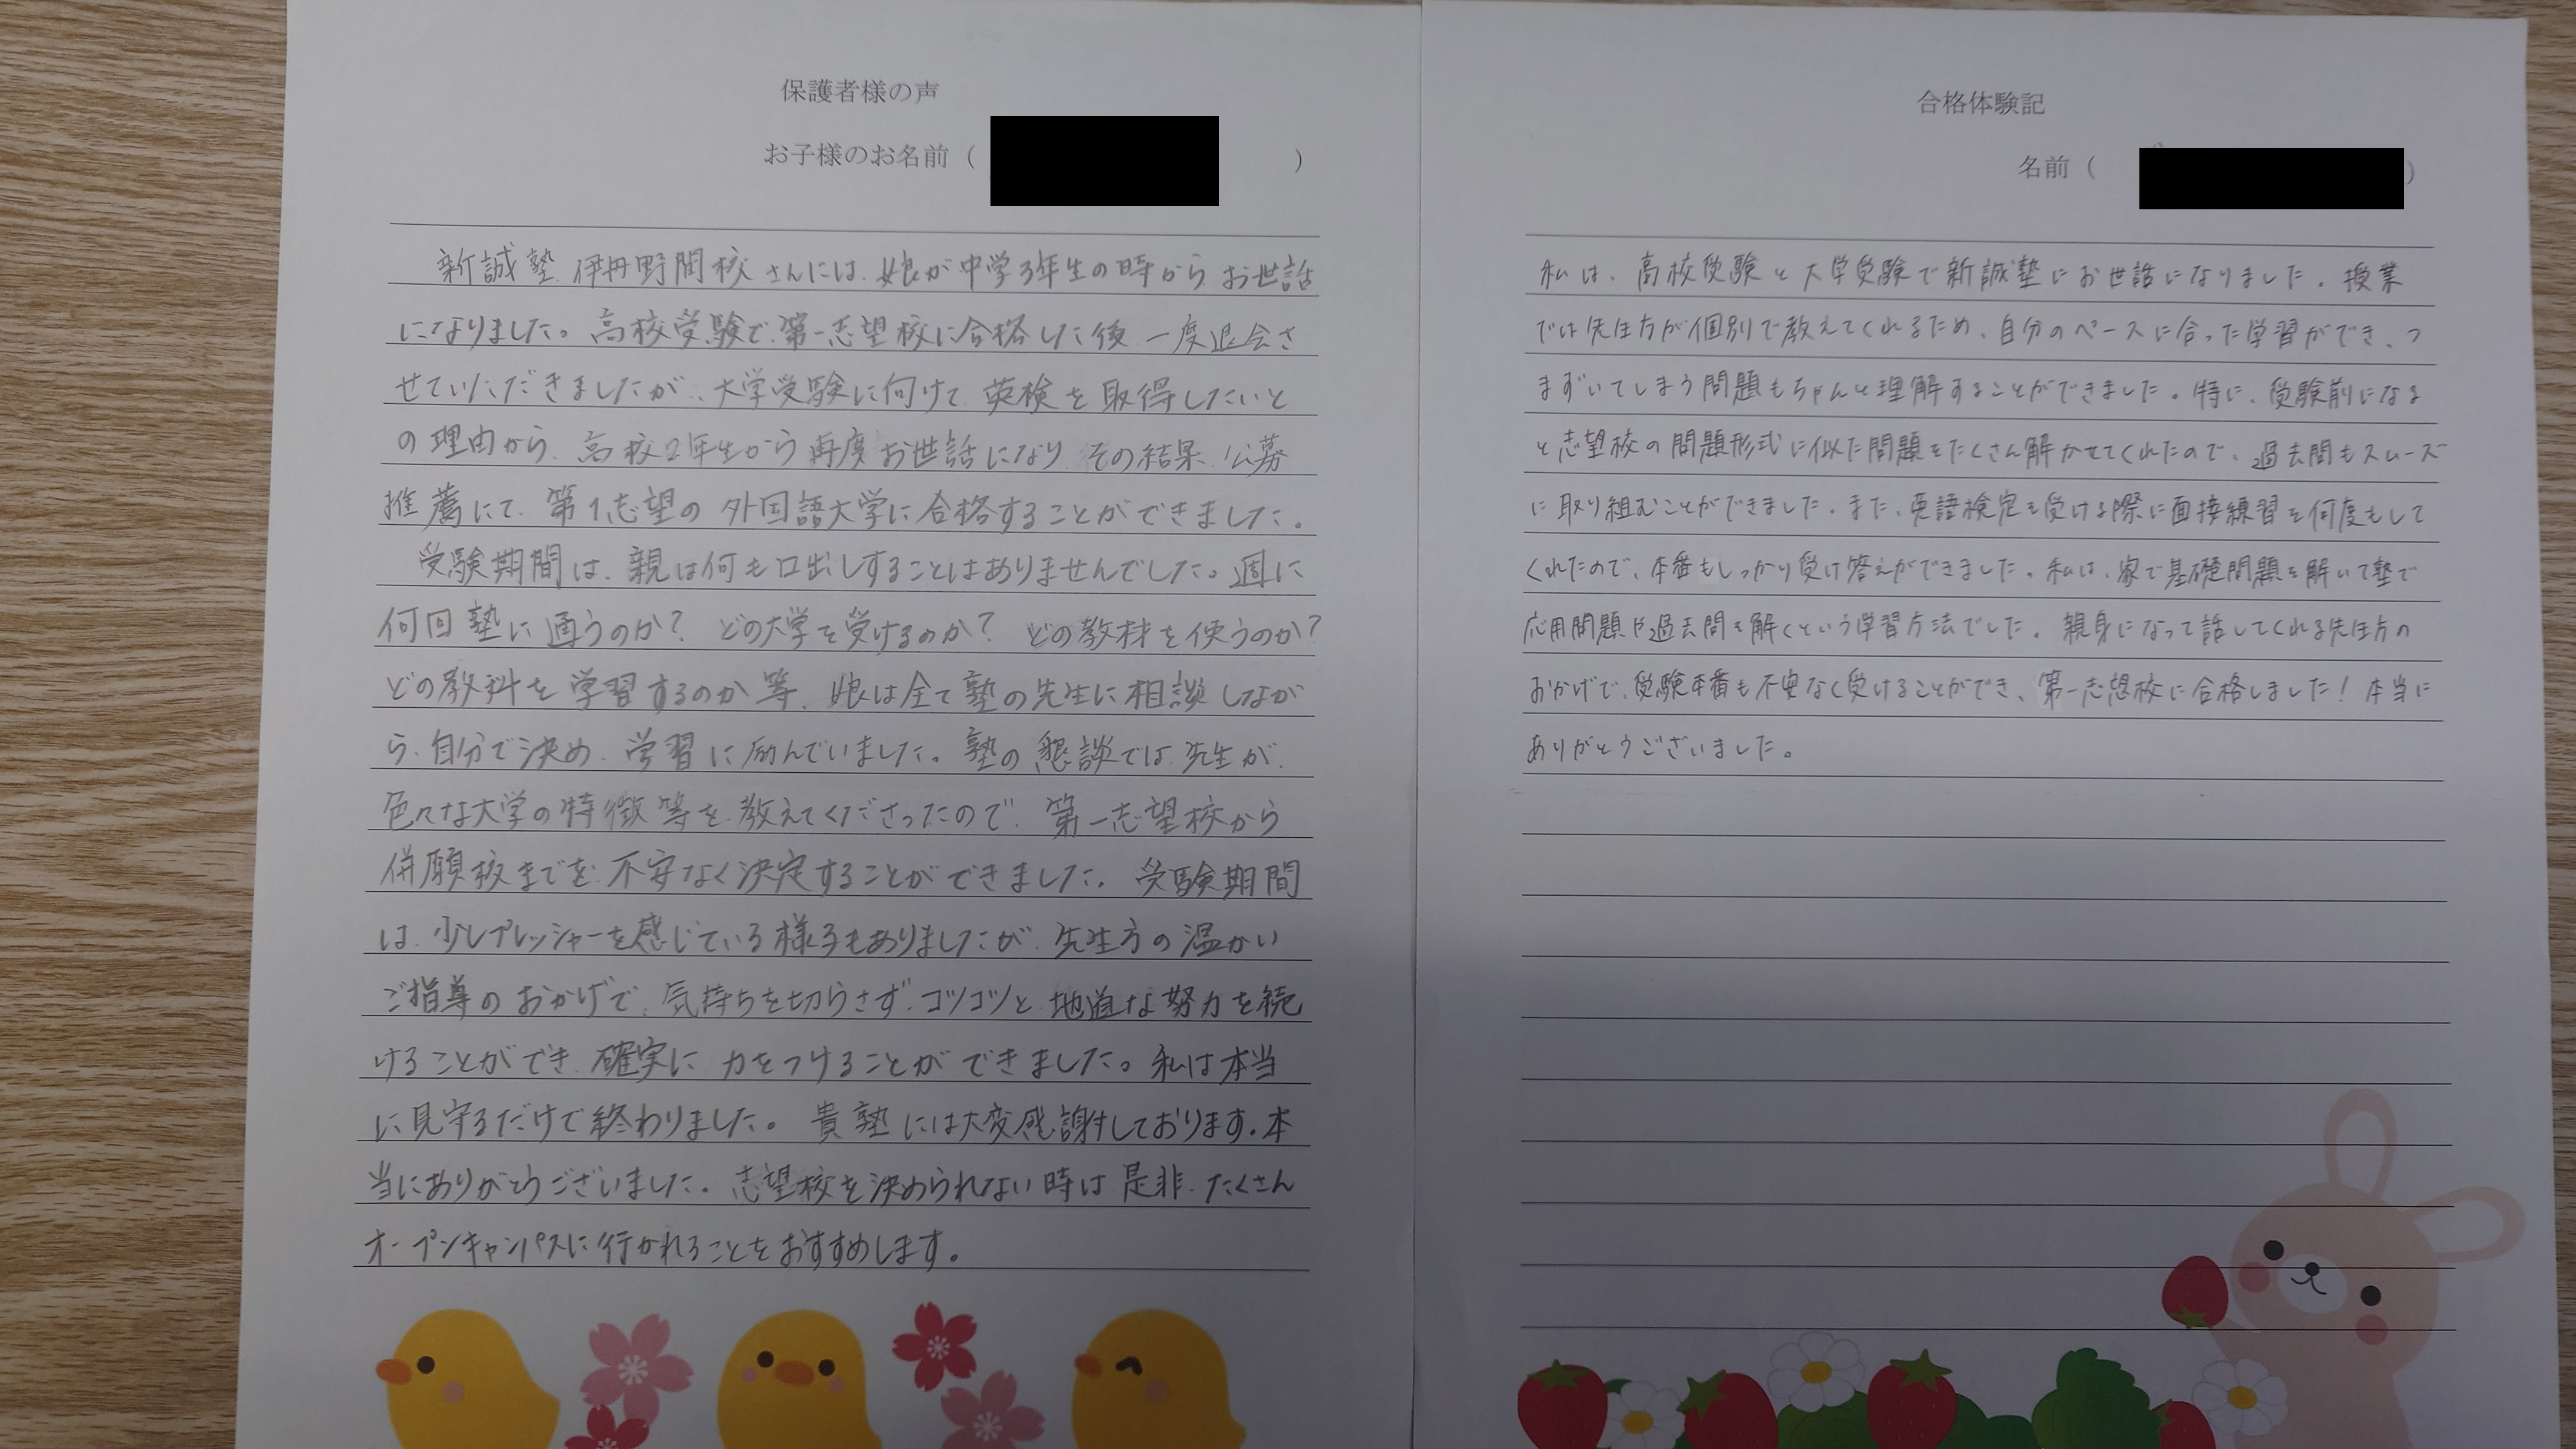 保護者様の声
お子様のお名前（　　　）
新誠塾 伊丹野間校さんには、娘が中学3年生の時からお世話
になりました。高校受験で、第一志望校に合格した後、一度退会さ
せていただきましたが、大学受験に向けて、英検を取得したいと
の理由から、高校2年生から再度お世話になり、その結果、公募
推薦にて、第1志望の外国語大学に合格することができました。
受験期間は、親は何も口出しすることはありませんでした。週に
何回塾に通うのか？ どの大学を受けるのか？ どの教材を使うのか？
どの教科を学習するのか等、娘は全て塾の先生に相談しなが
ら、自分で決め、学習に励んでいました。塾の懇談では、先生が、
色々な大学の特徴等を、教えてくださったので、第一志望校から
併願校までを、不安なく決定することができました。受験期間
は、少しプレッシャーを感じている様子もありましたが、先生方の温かい
ご指導のおかげで、気持ちを切らさず、コツコツと、地道な努力を続
けることができ、確実に力をつけることができました。私は本当
に見守るだけで終わりました。貴塾には大変感謝しております。本
当にありがとうございました。志望校を決められない時は是非、たくさん
オープンキャンパスに行かれることをおすすめします。
合格体験記
名前（　　　）
私は、高校受験と大学受験で新誠塾にお世話になりました。授業
では先生方が個別で教えてくれるため、自分のペースに合った学習ができ、つ
まずいてしまう問題もちゃんと理解することができました。特に、受験前になる
と志望校の問題形式に似た問題をたくさん解かせてくれたので、過去問もスムーズ
に取り組むことができました。また、英語検定を受ける際に面接練習を何度もして
くれたので、本番もしっかり受け答えができました。私は、家で基礎問題を解いて塾で
応用問題や過去問を解くという学習方法でした。親身になって話してくれる先生方の
おかげで、受験本番も不安なく受けることができ、第一志望校に合格しました！本当に
ありがとうございました。